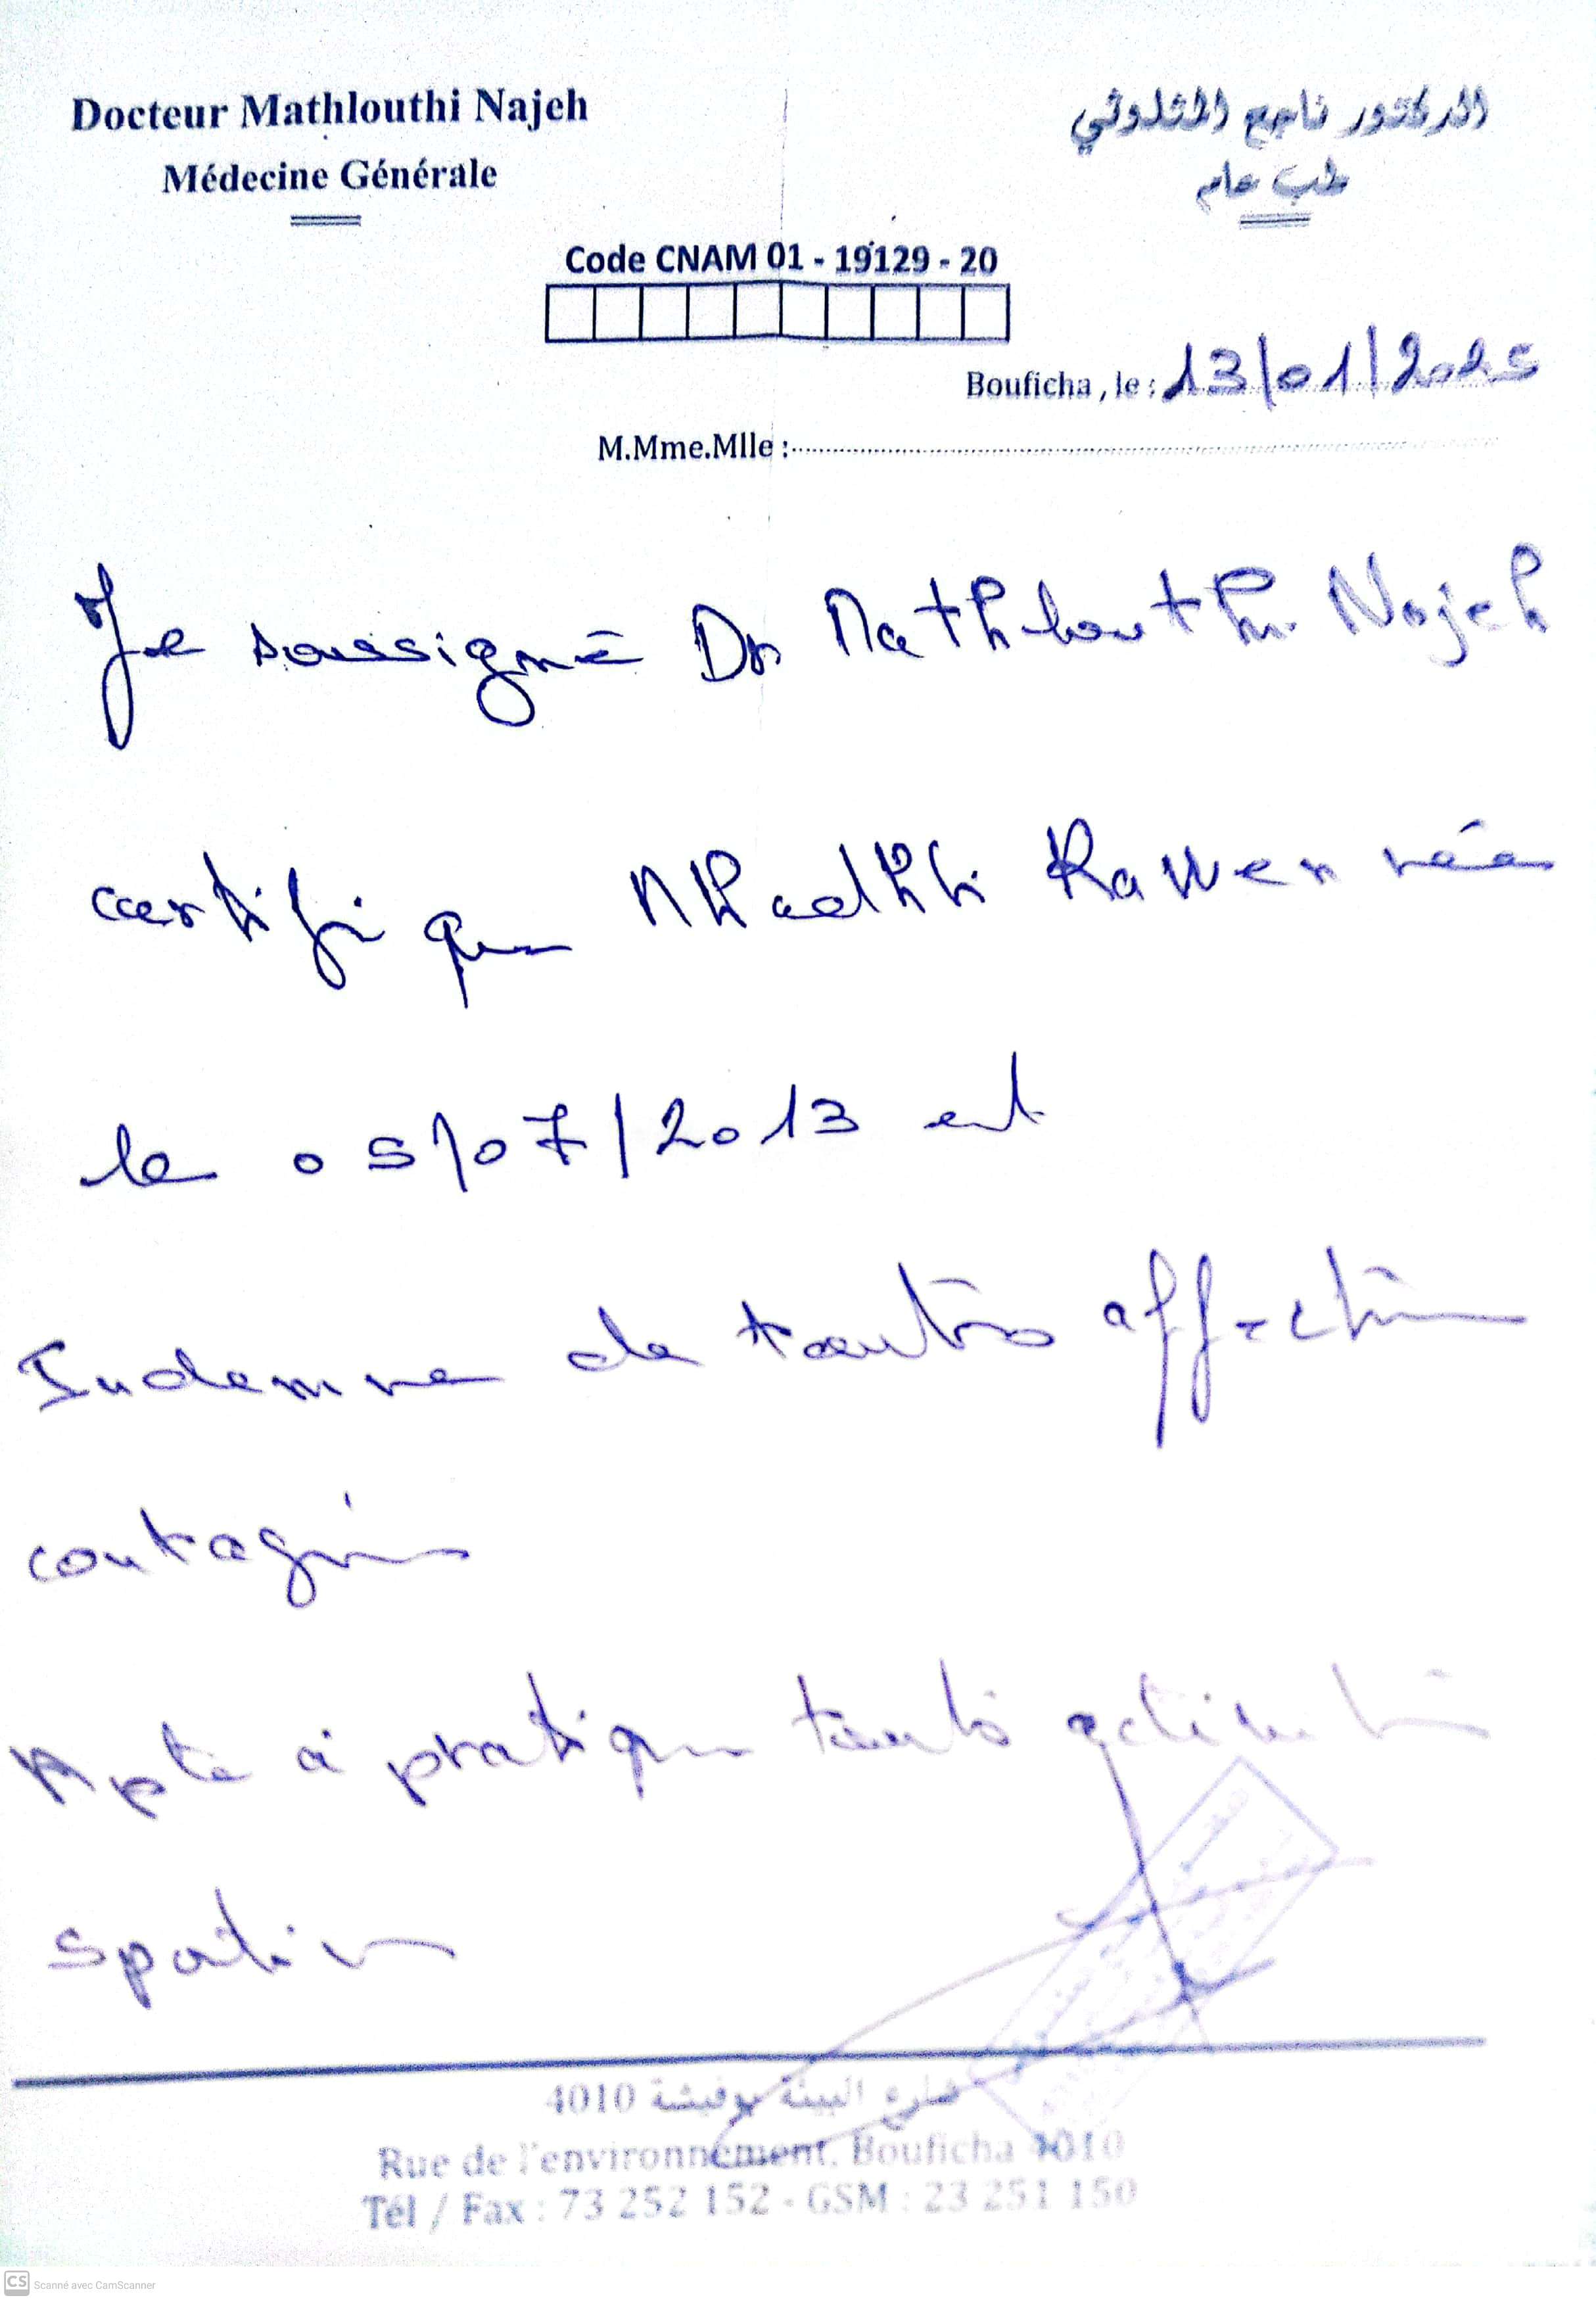 Docteur Mathlouthi Najeh
الدكتور ناجح المثلوثي
Médecine Générale
طب عام
Code CNAM 01 - 19129 - 20
Bouficha , le : 13/01/2025
M.Mme.Mlle :
Je soussigné Dr Mathlouthi Najeh
certifi que Mhadhbi Rawen née
le 05/07/2013 est
Indemne de toute affection
contagieuse
Apte à pratiquer toute activité
sportive
شارع البيئة بوفيشة 4010
Rue de l'environnement, Bouficha 4010
Tél / Fax : 73 252 152 - GSM : 23 251 150
CS Scanné avec CamScanner